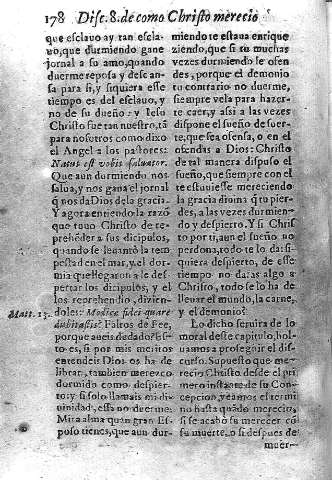 178 Disc. 8. de como Christo merecio
que esclauo ay tan escla-
uo, que durmiendo gane
jornal a su amo, quando
duerme reposa y descan-
sa para si, y siquiera esse
tiempo es del esclauo, y
no de su dueño: y Iesu
Christo fue tan nuestro, tã
para nosotros como dixo
el Angel a los pastores:
Natus est vobis saluator.
Que aun durmiendo nos
salua, y nos gana el jornal
q̃ nos da Dios de la gracia.
Y agora entiendo la razõ
que tuuo Christo de re-
prehẽder a sus dicipulos,
quando se leuantò la tem-
pestad en el mar, y el dor-
mia que llegaron a le des-
pertar los dicipulos, y el
los reprehendio, dizien-
doles: Modicæ fidei quare
dubitastis? Faltos de Fee,
porque aueis dedado? Es-
to es, si por mis meritos
entendeis Dios os ha de
librar, tambien merezco
dormido como despier-
to; y si solo llamais mi di-
uinidad, essa no duerme.
Mira alma quan gran Es-
poso tienes, que aun dur-
Matt. 13.
miendo te estaua enrique
ziendo, que si tu muchas
vezes durmiendo le ofen
des, porque el demonio
tu contrario no duerme,
siempre vela para hazer-
te caer, y assi a las vezes
dispone el sueño de suer-
te, que sea ofensa, o en el
ofendas a Dios: Christo
de tal manera dispuso el
sueño, que siempre con el
te estuuiesse mereciendo
la gracia diuina q̃ tu pier-
des, a las vezes durmien-
do y despierto. Y si Christo
por ti, aun el sueño no
perdona, todo te lo da: si-
quiera despierto, de esse
tiempo no daras algo a
Christo, todo se lo ha de
lleuar el mundo, la carne,
y el demonio?
Lo dicho seruira de lo
moral deste capitulo, bol-
uamos a proseguir el dis-
curso. Supuesto que me-
recio Christo desde el pri
mero instante de su Con-
cepcion, veamos el termi
no hasta quãdo merecio,
si se acabò su merecer cõ
su muerte, o si despues de
muer-